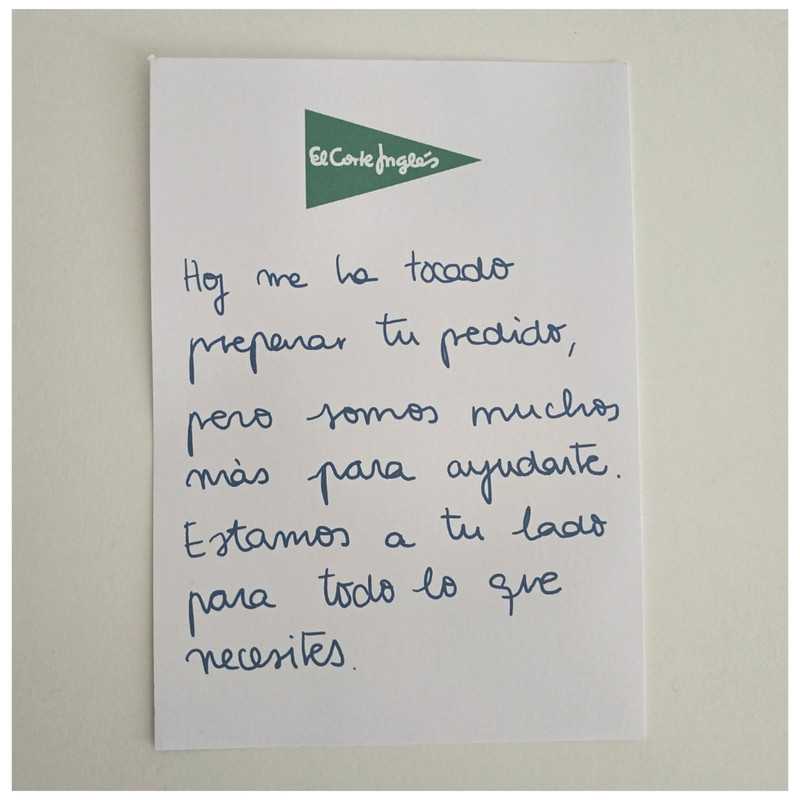 El Corte Inglés
Hoy me ha tocado
preparar tu pedido,
pero somos muchos
más para ayudarte.
Estamos a tu lado
para todo lo que
necesites.